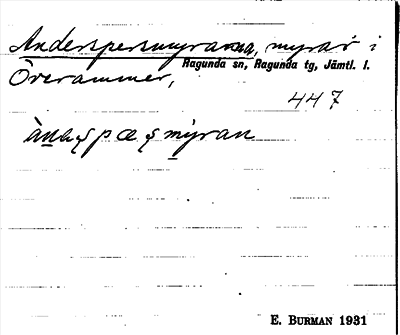 Anderspersmyrarna, myrar i
Ragunda sn, Ragunda tg, Jämtl. l.
Överammer,
447
E. BURMAN 1931